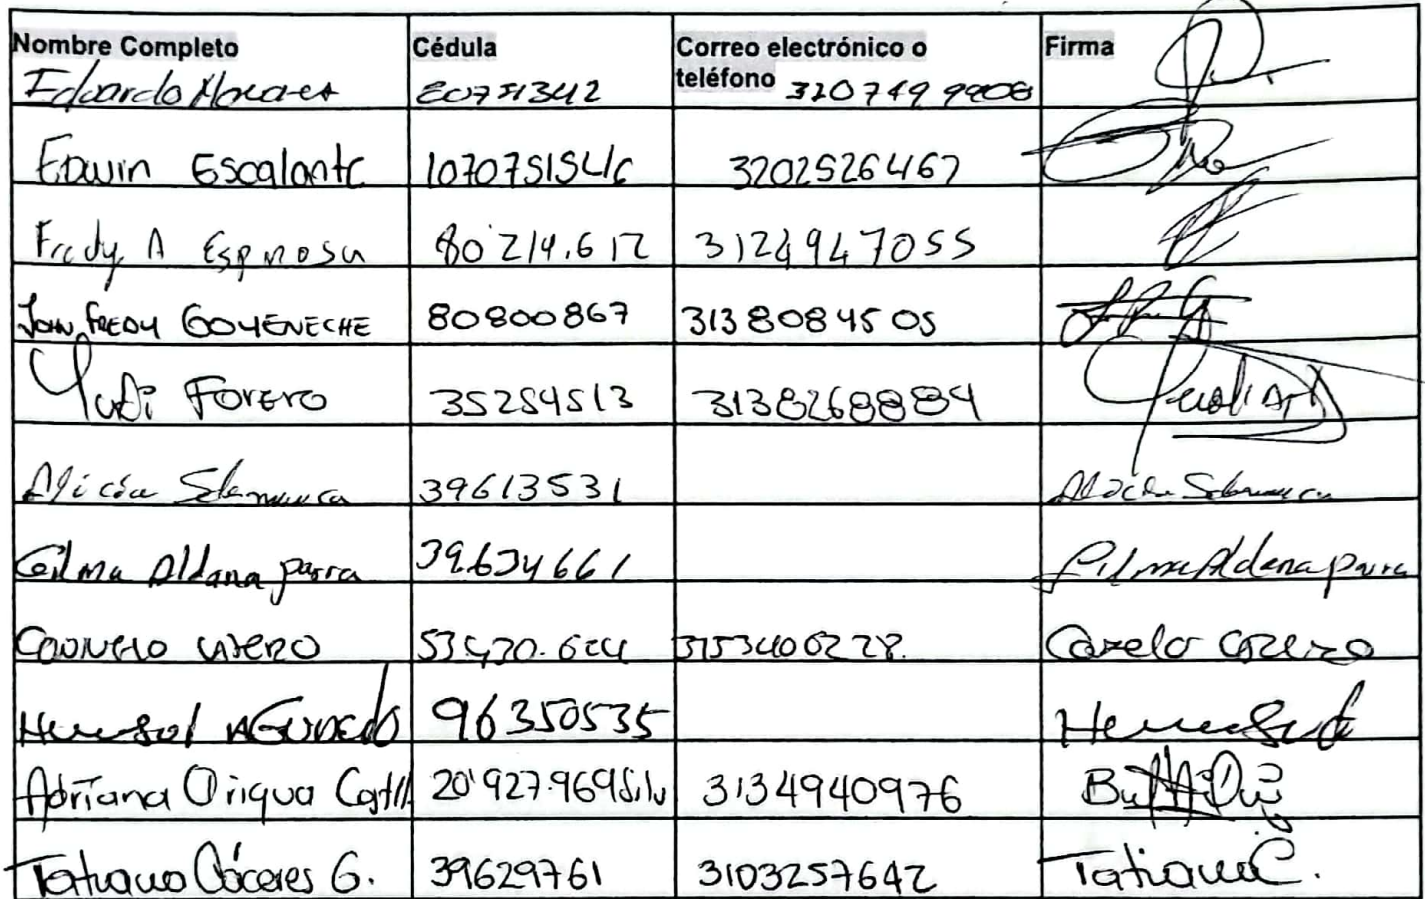 Nombre Completo Cédula Correo electrónico o teléfono Firma
Eduardo 80751342 320749 9908
Edwin Escalante 1070751546 3202526467
Fredy A Espinosa 80'214.612 3124947055
John Fredy GOYENECHE 80800867 3138084505
Yudi Forero 35254513 3138268884
Alicia Salamanca 39613531 Alicia Salamanca
Gilma Aldana parra 39.634661 Gilma Aldana parra
53470.624 3153406228.
96350535
Adriana Oriqua Cast 20'927.969 3134940976
Tatiana Cáceres G. 39629761 3103257642 Tatiana C.